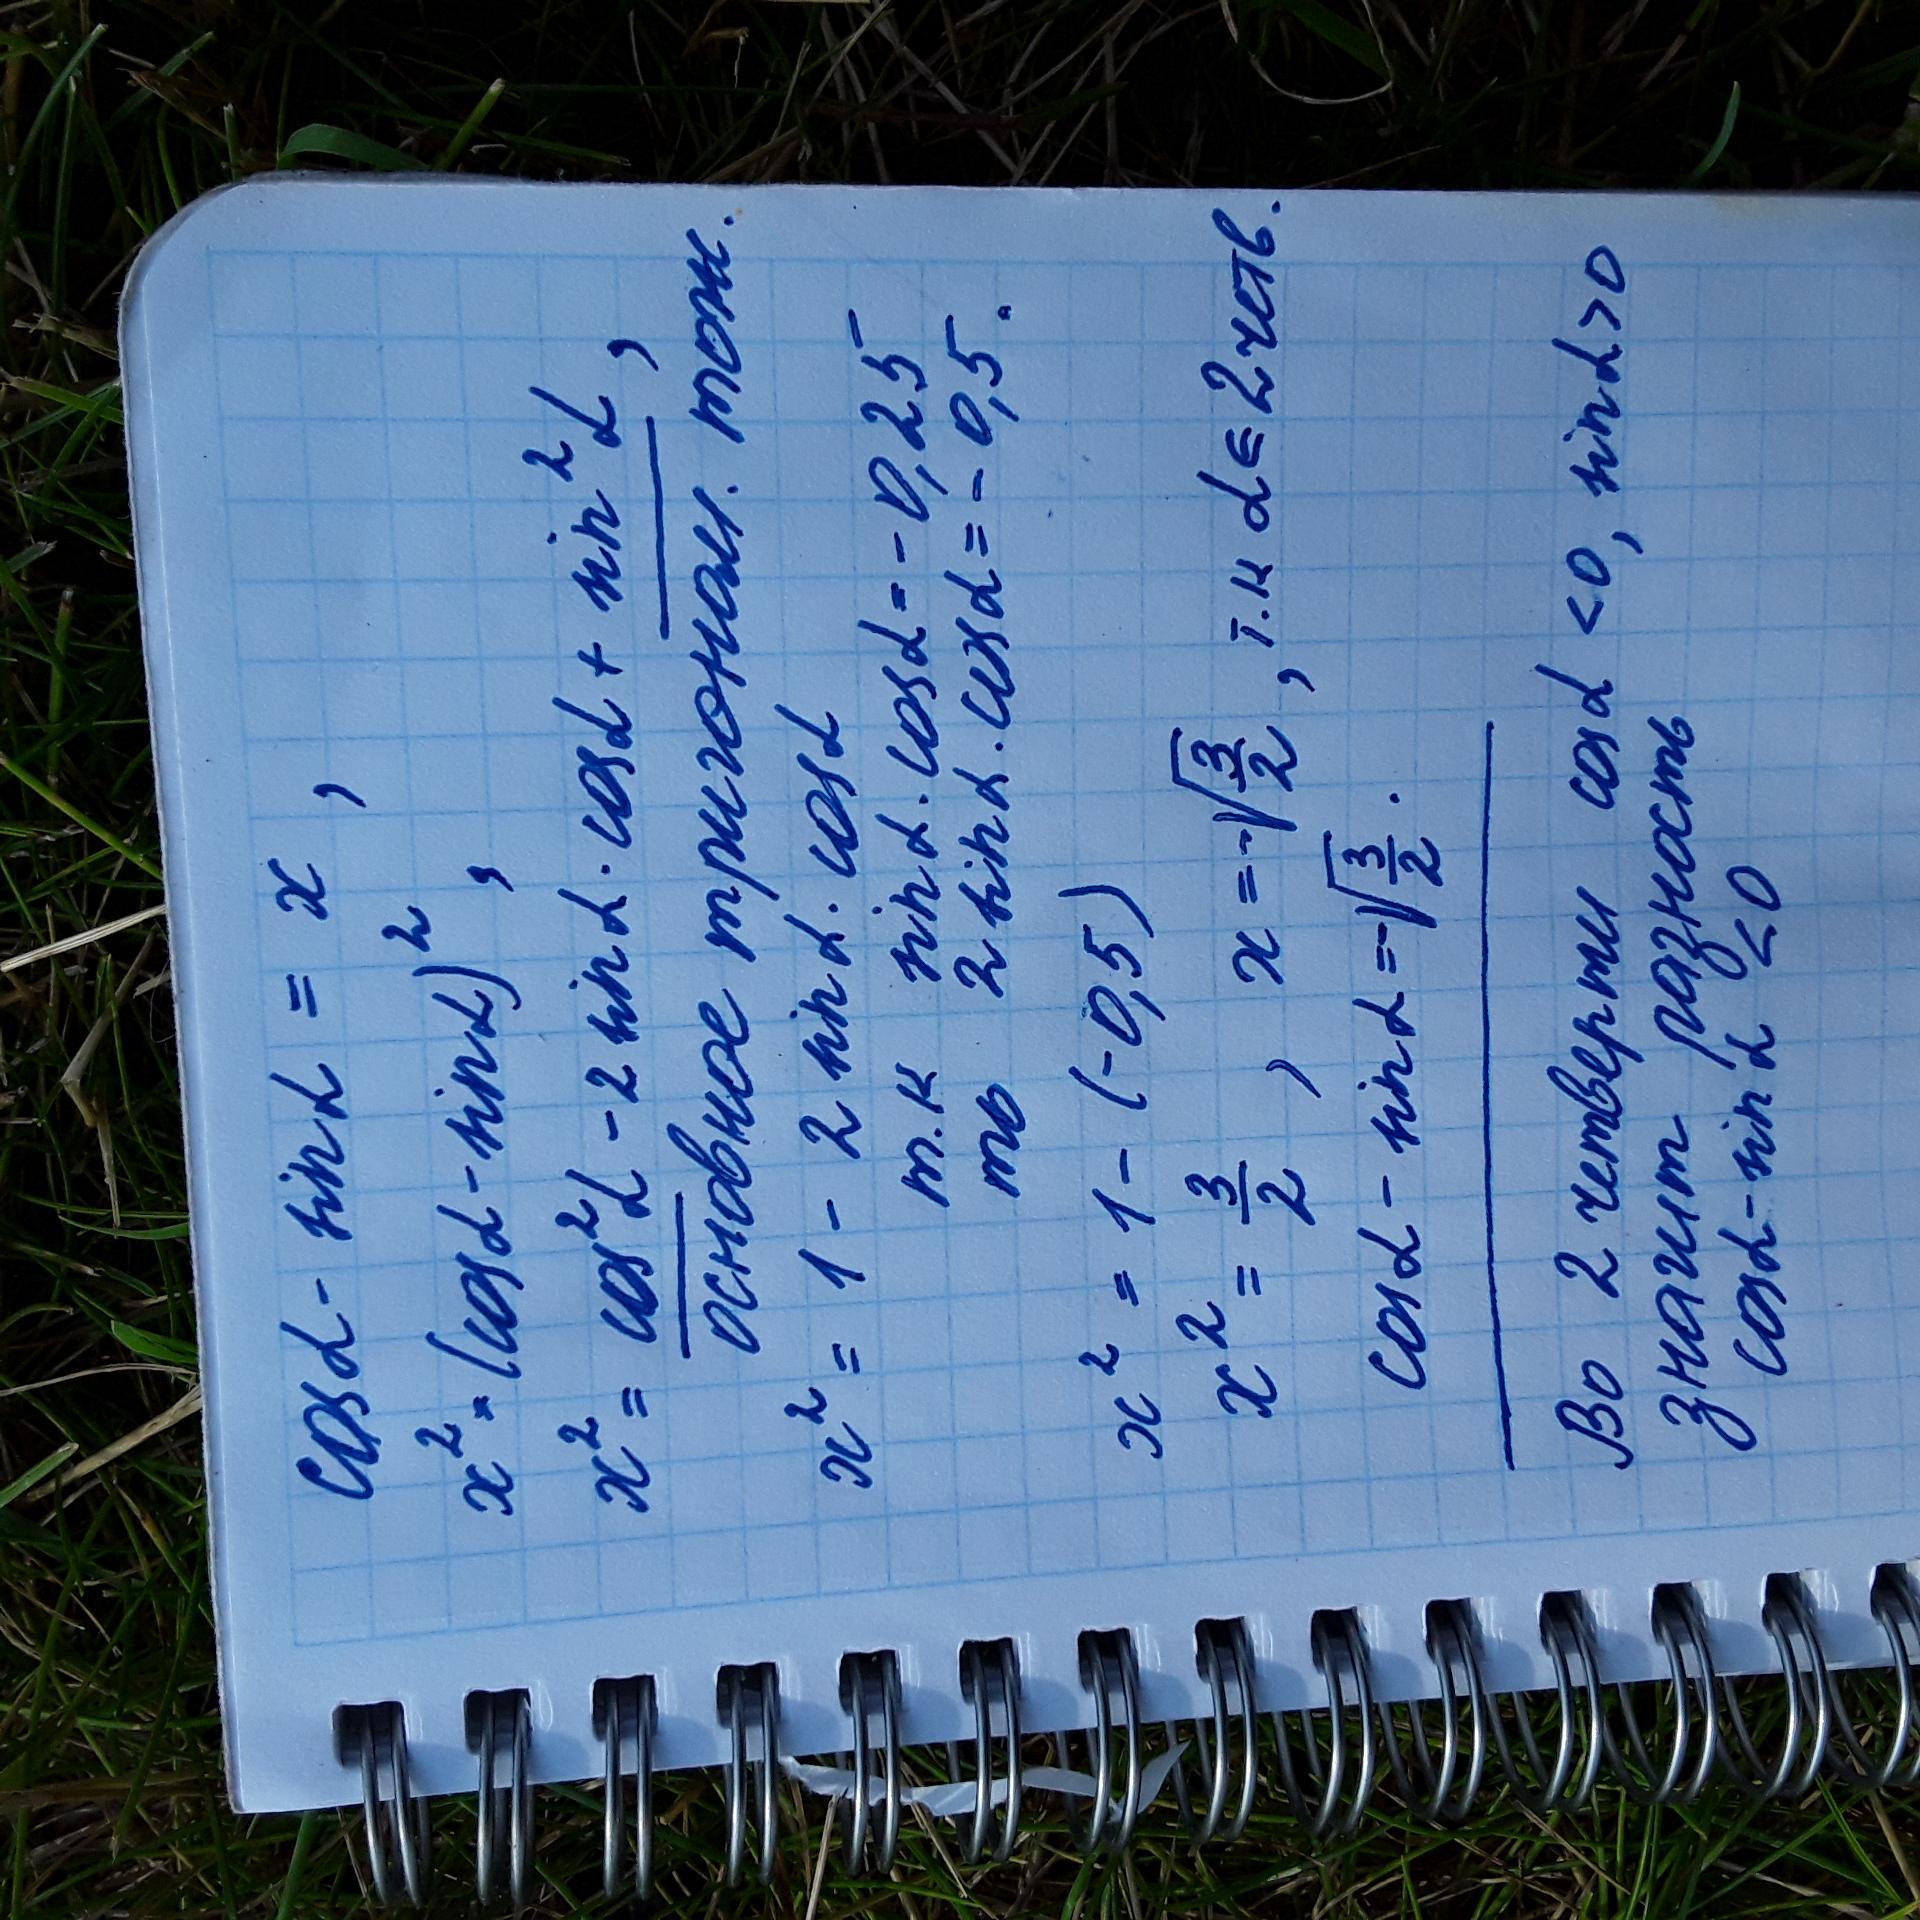 cosα - sinα = x ,
x² = (cosα - sinα)² ,
x² = cos²α - 2 sinα · cosα + sin²α ,
основное тригоном. тож.
x² = 1 - 2 sinα · cosα
т.к sinα · cosα = - 0,25
то 2 sinα · cosα = - 0,5 .
x² = 1 - (-0,5)
x² = 3/2 , x = -√3/2 , т.к α ∈ 2 четв.
cosα - sinα = -√3/2 .
Во 2 четверти cosα <0, sinα>0
значит разность
cosα - sinα <0